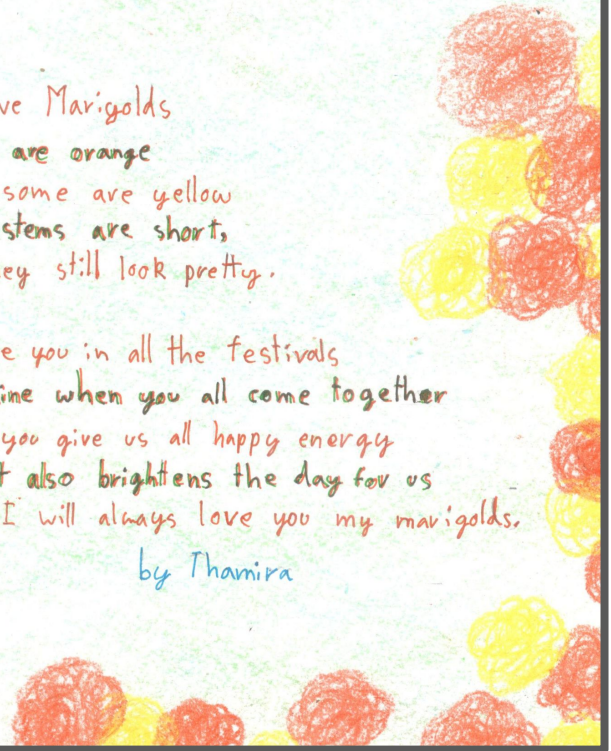 ve Marigolds
are orange
some are yellow
stems are short,
ey still look pretty.
e you in all the festivals
ime when you all come together
you give us all happy energy
t also brightens the day for us
I will always love you my marigolds.
by Thamira